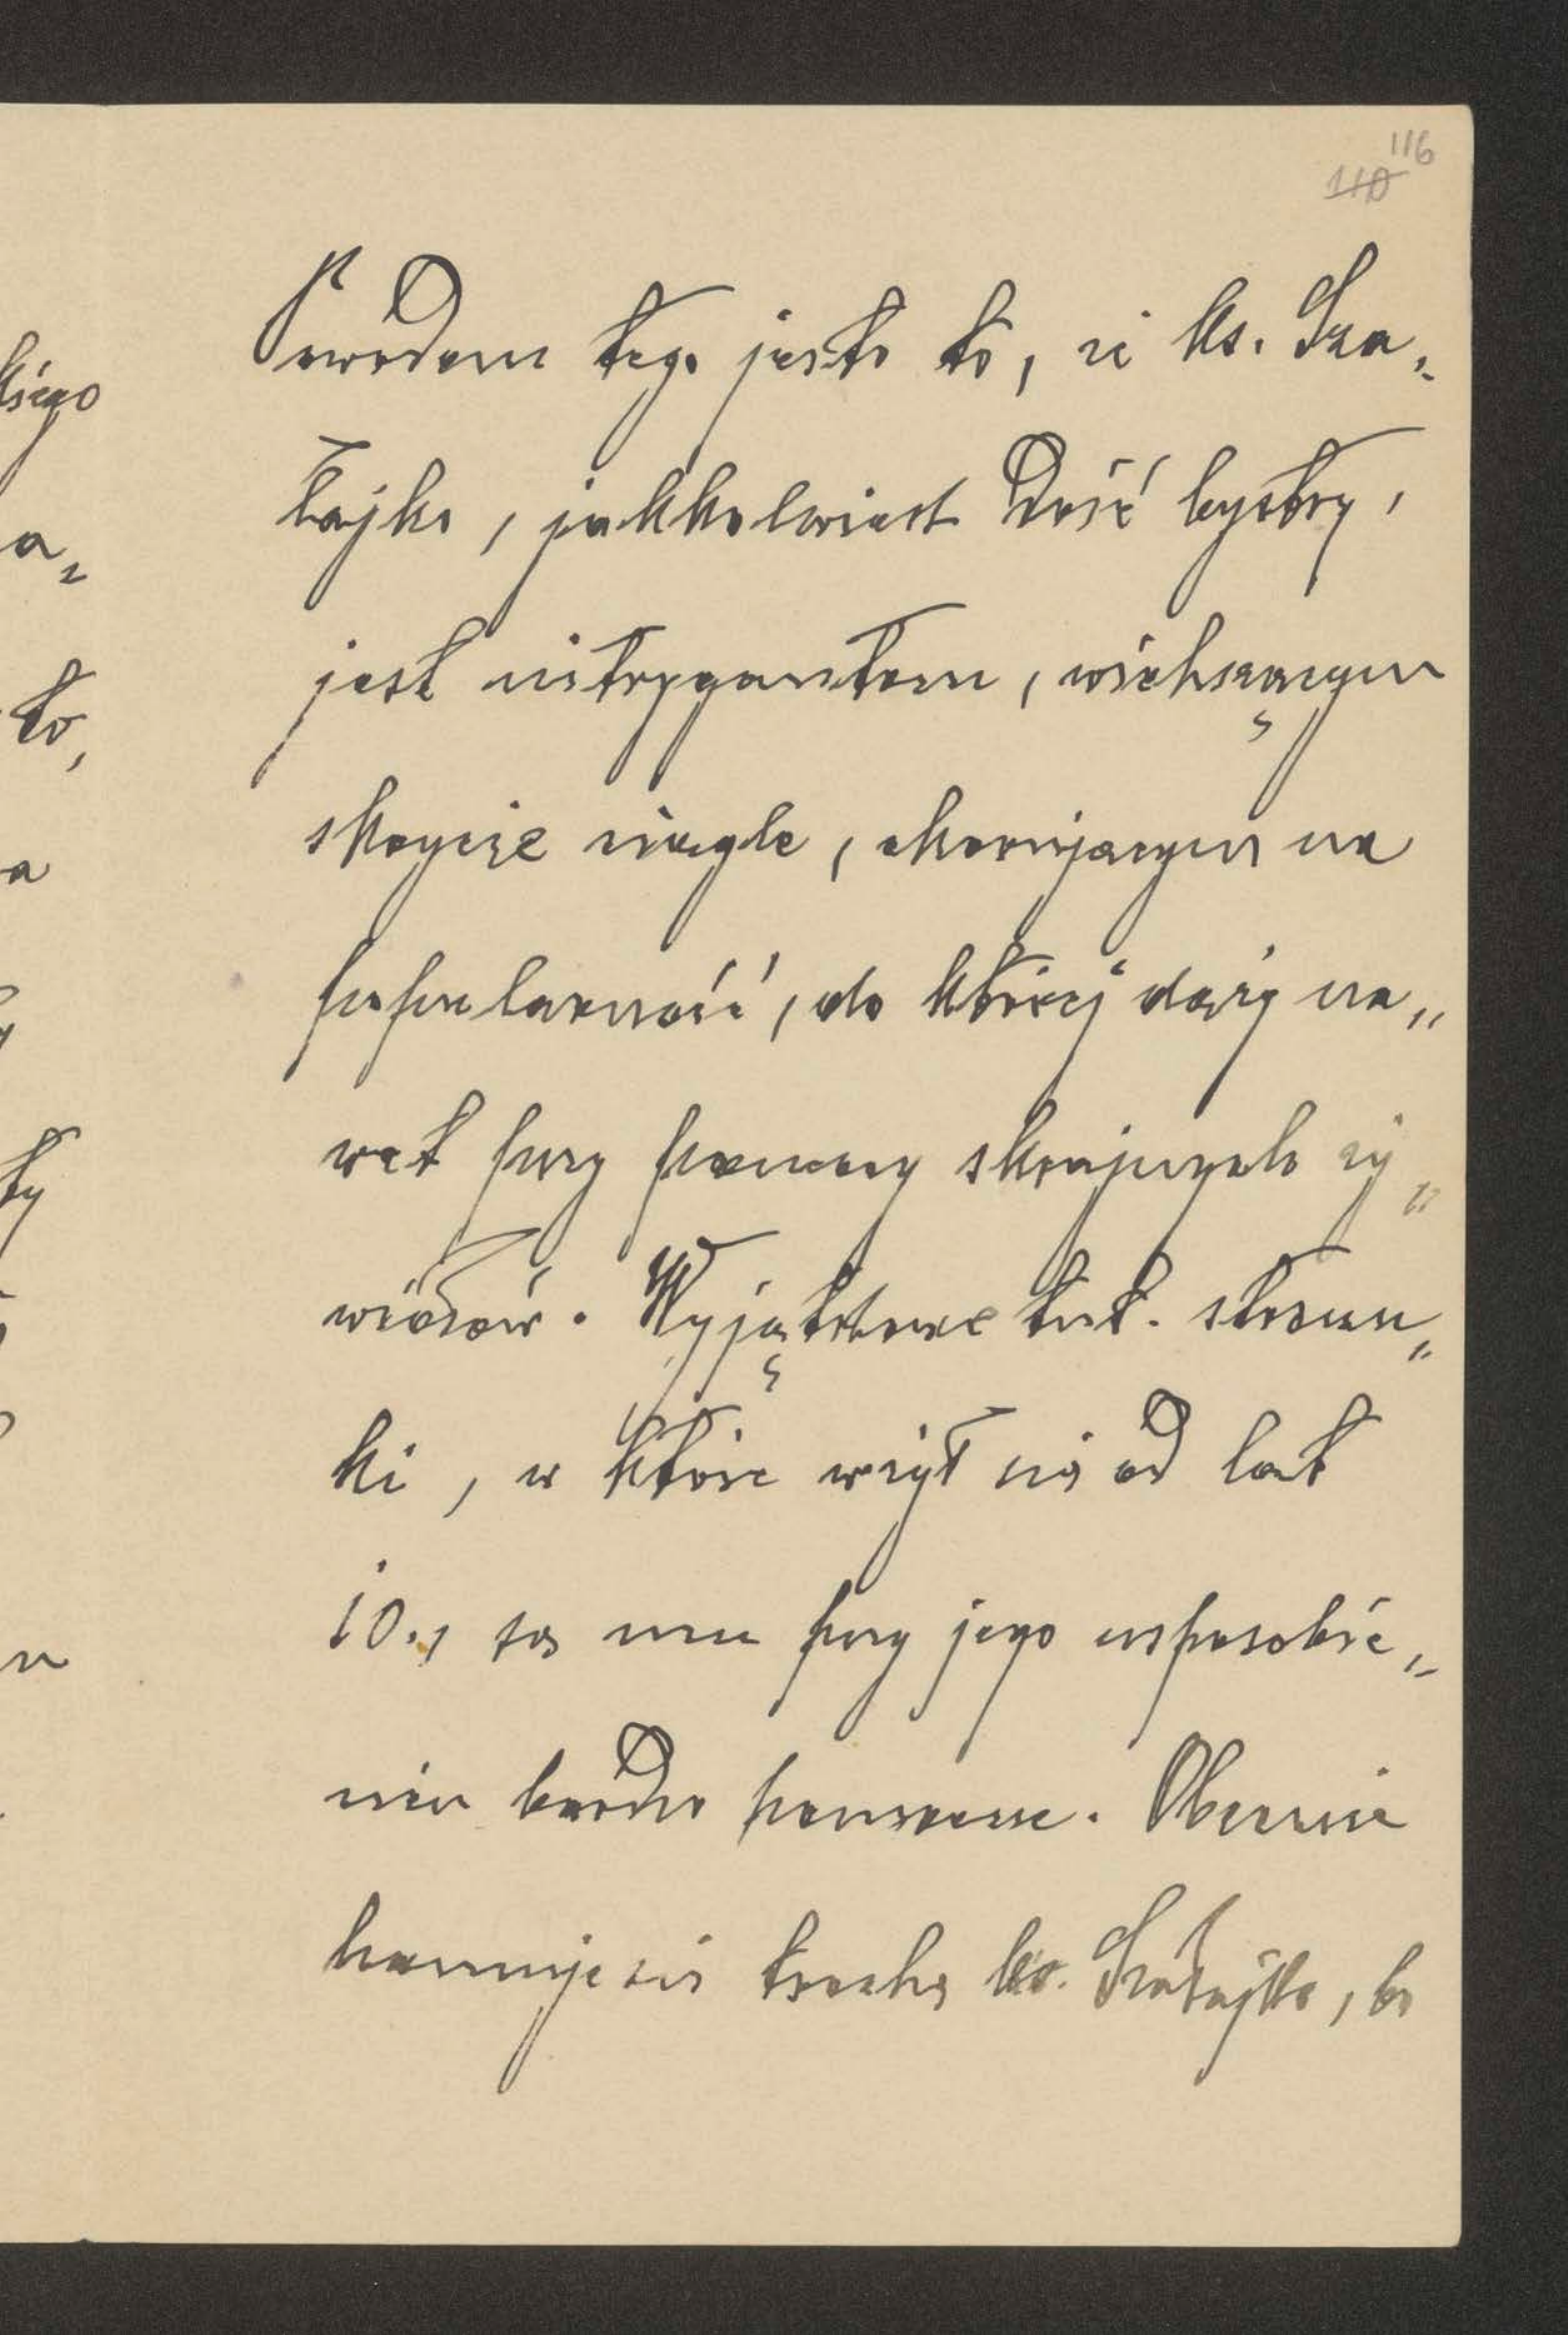 116
110
Powodem tego jest to, że ks. Sza„
łajko, jakkolwiek dość bystry,
jest intrygantem, wichrzącym
skrycie ciągle, chorującym na
popularność, do której dąży na„
wet przy pomocy skrajnych ży„
wiołów. Wyjątkowe tut. stosun„
ki, w które wżył się od lat
10., są mu przy jego usposobie„
niu bardzo pomocne. Obecnie
hamuje się trochę ks. Szałajko, bo